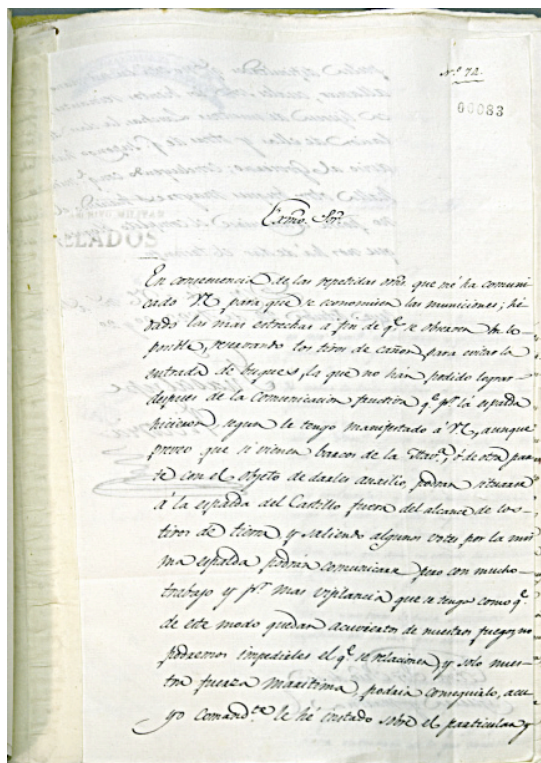 N.º 72.
00083
Exmo. Sor.
En consecuencia de las repetidas ords. que me ha comuni
cado VE para que se economisen las municiones; hé
dado las mas estrechas a fin de q.e se observe en lo
posible, reservando los tiros de cañon, para evitar la
entrada de buques, lo que no hán podido lograr
despues de la comunicacion q.e p.r la espalda
hicieron, segun le tengo manifestado á VE, aunque
preveo que si vienen barcos de la Hav.a, ó de otra par
te con el objeto de darles auxilio, podran situarse
á la espalda del Castillo fuera del alcance de los
tiros de tierra, y saliendo algunos votes por la mis
ma espalda podrán comunicarse pero con mucho
trabajo y p.r mas vigilancia que se tenga como q.e
de este modo quedan acuviertos de nuestros fuegos, no
podremos impedirles el q.e se relacionen, y solo nues
tra fuerza maritima, podria conseguirlo, acu
yo Comand.te le hé instado sobre el particular, y
ELADOS